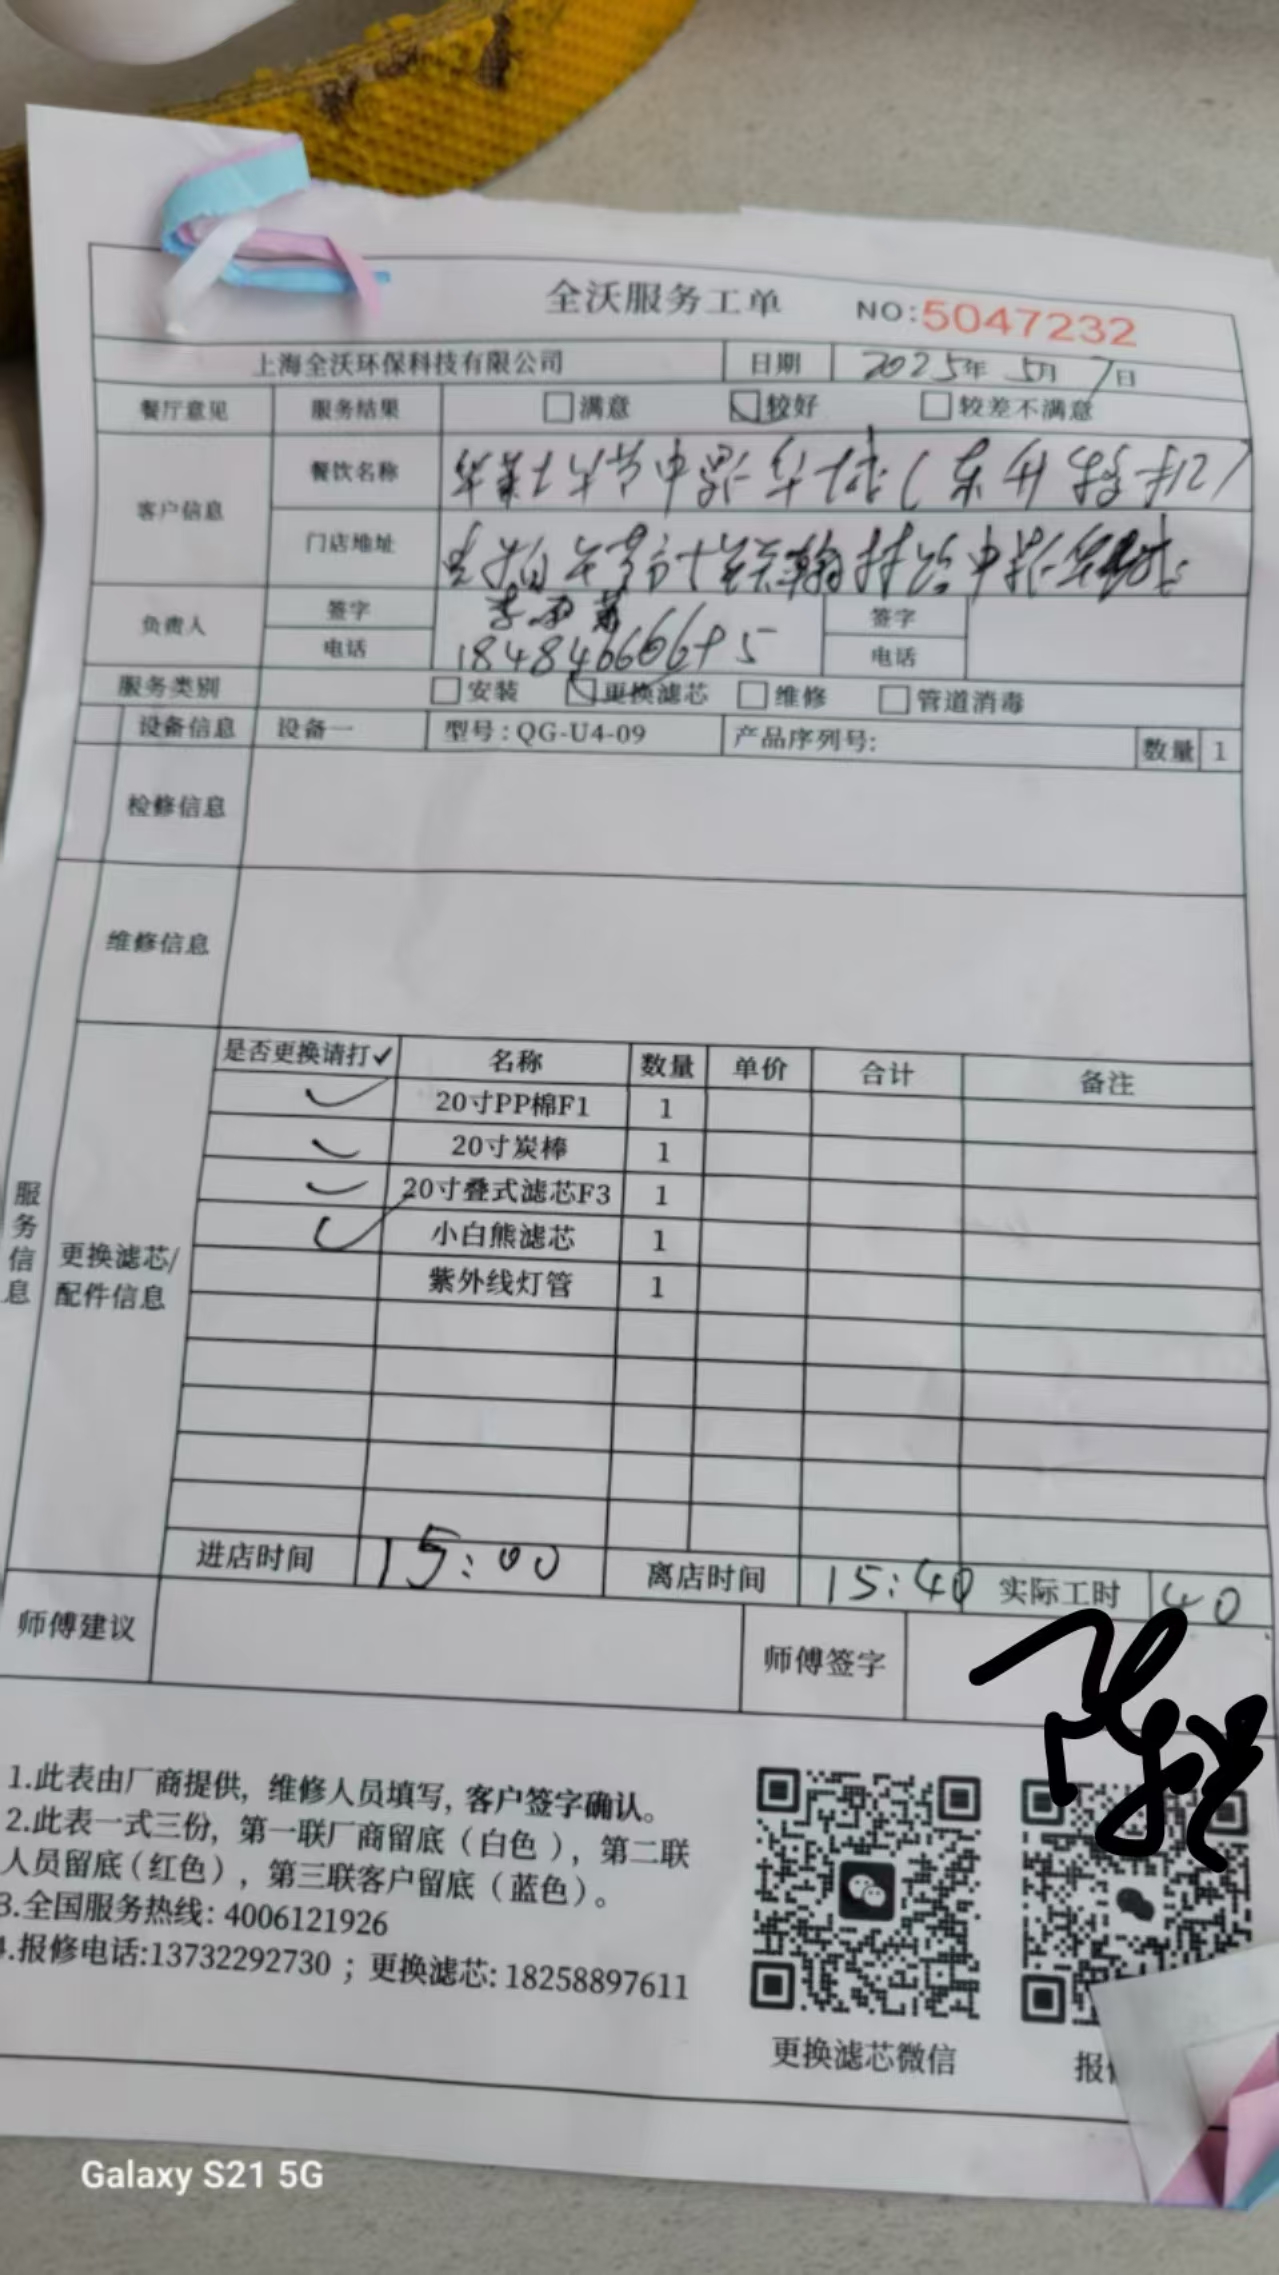 全沃服务工单 NO:5047232
上海全沃环保科技有限公司 日期 2025年 5月 7日
餐厅意见 服务结果 满意 较好 较差不满意
客户信息 餐饮名称
门店地址
负责人 签字 签字
电话 电话
服务类别 安装 更换滤芯 维修 管道消毒
设备信息 设备一 型号:QG-U4-09 产品序列号: 数量 1
检修信息
维修信息
服务信息
更换滤芯/配件信息
是否更换请打✓ 名称 数量 单价 合计 备注
✓ 20寸PP棉F1 1
✓ 20寸炭棒 1
✓ 20寸叠式滤芯F3 1
✓ 小白熊滤芯 1
紫外线灯管 1
进店时间 15:00 离店时间 15:40 实际工时 40
师傅建议 师傅签字
1.此表由厂商提供, 维修人员填写, 客户签字确认。
2.此表一式三份, 第一联厂商留底(白色), 第二联
人员留底(红色), 第三联客户留底(蓝色)。
3.全国服务热线: 4006121926
4.报修电话:13732292730 ; 更换滤芯: 18258897611
更换滤芯微信
Galaxy S21 5G